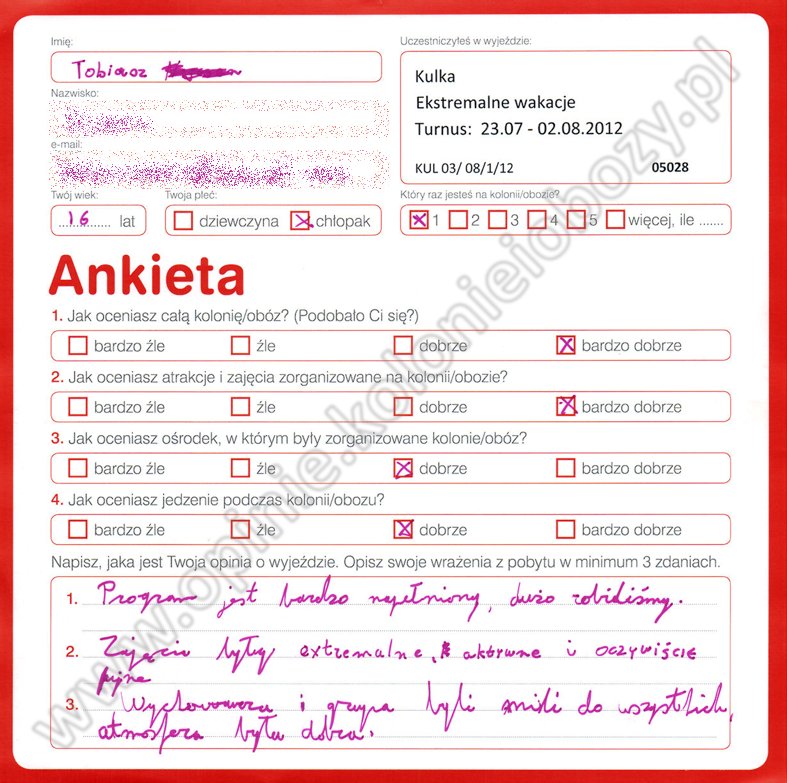 Imię:
Tobiasz
Uczestniczyłeś w wyjeździe:
Kulka
Ekstremalne wakacje
Turnus: 23.07 - 02.08.2012
KUL 03/ 08/1/12 05028
Nazwisko:
e-mail:
Twój wiek: Twoja płeć: Który raz jesteś na kolonii/obozie?
16 lat dziewczyna chłopak 1 2 3 4 5 więcej, ile .......
Ankieta
1. Jak oceniasz całą kolonię/obóz? (Podobało Ci się?)
bardzo źle źle dobrze bardzo dobrze
2. Jak oceniasz atrakcje i zajęcia zorganizowane na kolonii/obozie?
bardzo źle źle dobrze bardzo dobrze
3. Jak oceniasz ośrodek, w którym były zorganizowane kolonie/obóz?
bardzo źle źle dobrze bardzo dobrze
4. Jak oceniasz jedzenie podczas kolonii/obozu?
bardzo źle źle dobrze bardzo dobrze
Napisz, jaka jest Twoja opinia o wyjeździe. Opisz swoje wrażenia z pobytu w minimum 3 zdaniach.
1. Program jest bardzo napełniony, dużo robiliśmy.
2. Zajęcia były extremalne, aktywne i oczywiście
fajne
3. Wychowawca i grupa byli mili do wszystkich,
atmosfera była dobra.
www.opinie.kolonieiobozy.pl